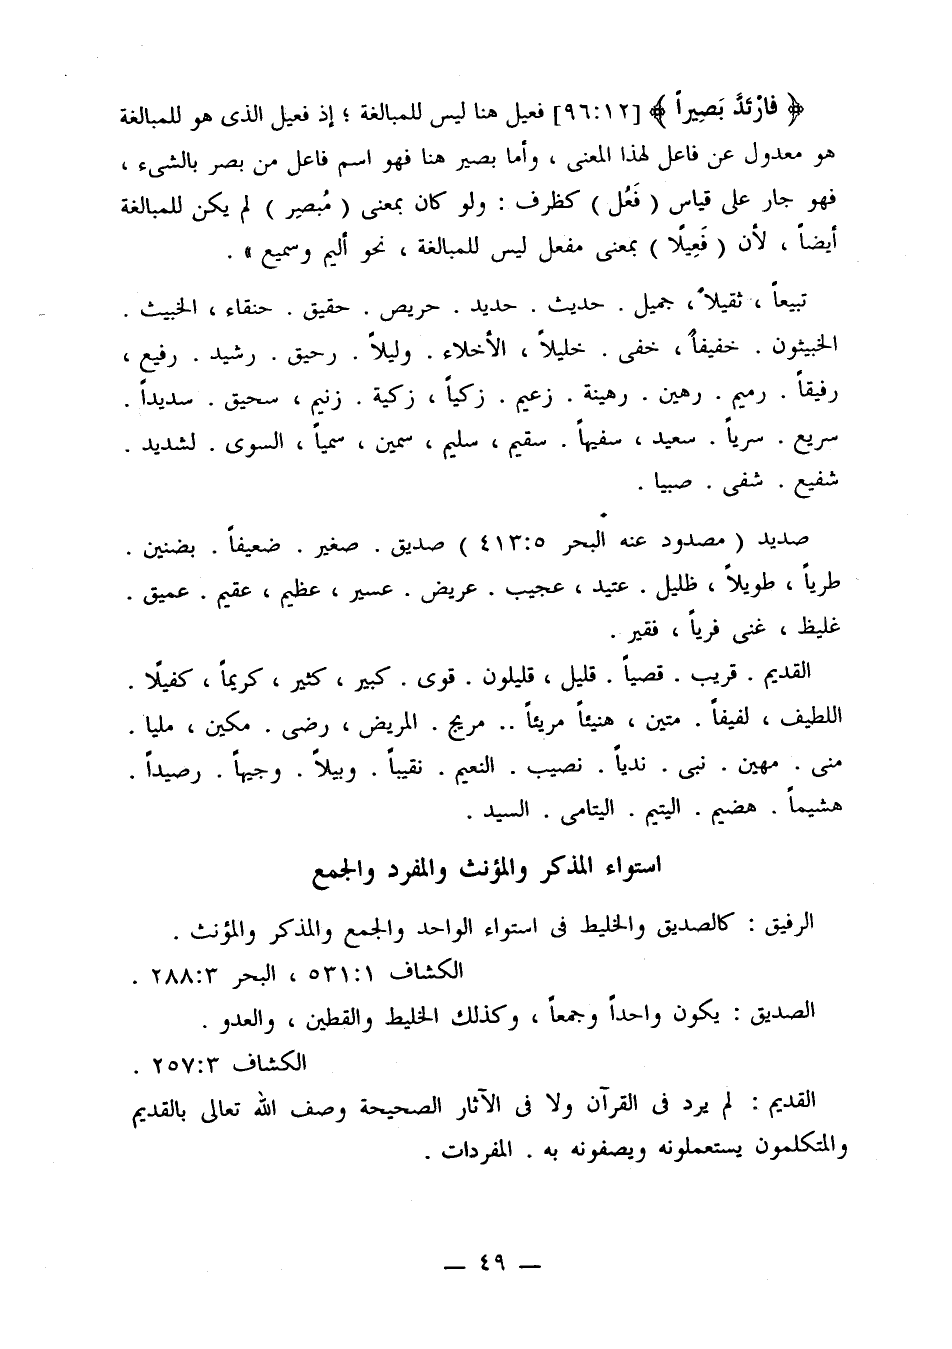 ﴿ فَارْتَدَّ بَصِيراً ﴾ [٩٦:١٢] فعيل هنا ليس للمبالغة ؛ إذ فعيل الذى هو للمبالغة
هو معدول عن فاعل لهذا المعنى ، وأما بصير هنا فهو اسم فاعل من بصر بالشىء ،
فهو جار على قياس ( فَعُل ) كظرف : ولو كان بمعنى ( مُبصِر ) لم يكن للمبالغة
أيضاً ، لأن ( فَعِيلًا ) بمعنى مفعل ليس للمبالغة ، نحو أليم وسميع » .
تبيعاً ، ثقيلاً ، جميل . حديث . حديد . حريص . حقيق . حنقاء ، الخبيث .
الخبيثون . خفيفاً ، خفى . خليلاً ، الأخلاء . وليلاً . رحيق . رشيد . رفيع ،
رفيقاً . رميم . رهين . رهينة . زعيم . زكياً ، زكية . زنيم ، سحيق . سديداً .
سريع . سرياً . سعيد ، سفيهاً . سقيم ، سليم ، سمين ، سمياً ، السوى . لشديد .
شفيع . شفى . صبيا .
صديد ( مصدود عنه البحر ٤١٣:٥ ) صديق . صغير . ضعيفاً . بضنين .
طرياً ، طويلاً ، ظليل . عتيد ، عجيب . عريض . عسير ، عظيم ، عقيم . عميق .
غليظ ، غنى فرياً ، فقير .
القديم . قريب . قصياً . قليل ، قليلون . قوى . كبير ، كثير ، كريماً ، كفيلًا .
اللطيف ، لفيفاً . متين ، هنيئاً مريئاً .. مريج . المريض ، رضى . مكين ، مليا .
منى . مهين . نبى . ندياً . نصيب . النعيم . نقيباً . وبيلاً . وجيهاً . رصيداً .
هشيماً . هضيم . اليتيم . اليتامى . السيد .
استواء المذكر والمؤنث والمفرد والجمع
الرفيق : كالصديق والخليط فى استواء الواحد والجمع والمذكر والمؤنث .
الكشاف ٥٣١:١ ، البحر ٢٨٨:٣ .
الصديق : يكون واحداً وجمعاً ، وكذلك الخليط والقطين ، والعدو .
الكشاف ٢٥٧:٣ .
القديم : لم يرد فى القرآن ولا فى الآثار الصحيحة وصف الله تعالى بالقديم
والمتكلمون يستعملونه ويصفونه به . المفردات .
— ٤٩ —